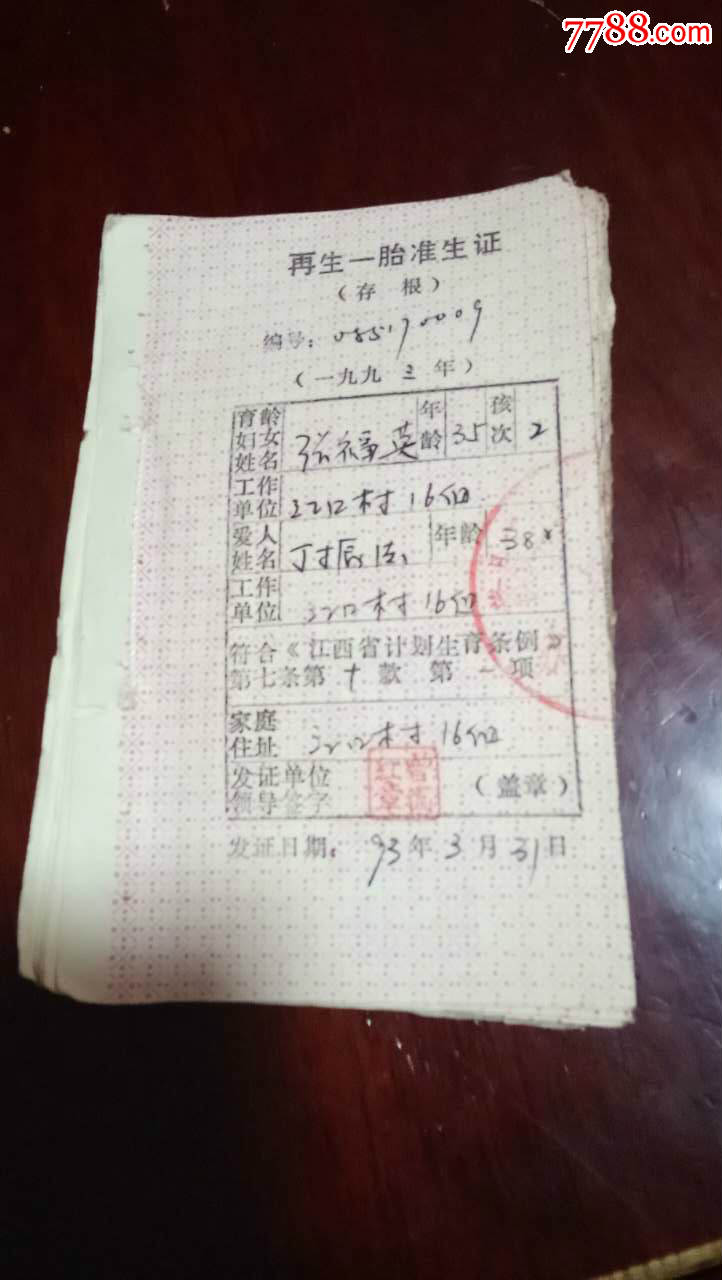 7788.com
再生一胎准生证
（存 根）
编号：085170009
（一九九三年）
育龄妇女姓名 张福英 年龄 35 孩次 2
工作单位 江口村16组
爱人姓名 年龄 38
工作单位 江口村16组
符合《江西省计划生育条例》
第七条第十款 第一项
家庭住址 江口村16组
发证单位领导签字 （盖章）
发证日期：93年3月31日